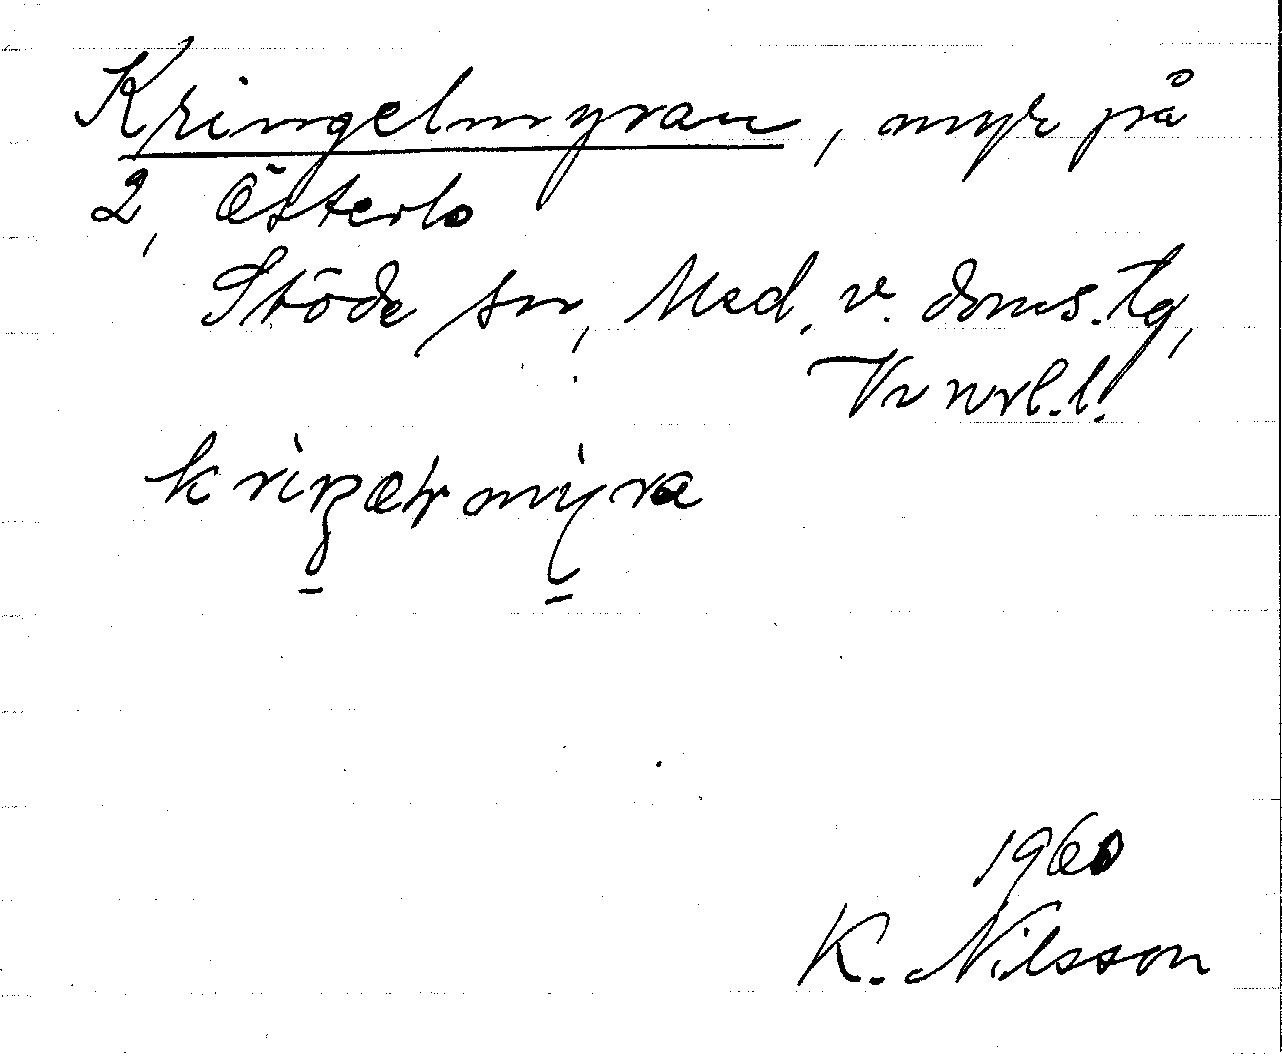 Kringelmyran, myr på
2, Österlo
Stöde sn, Med. v. doms.tg,
Vnrl.l.
kriŋəlmy̱ra
1960
K. Nilsson